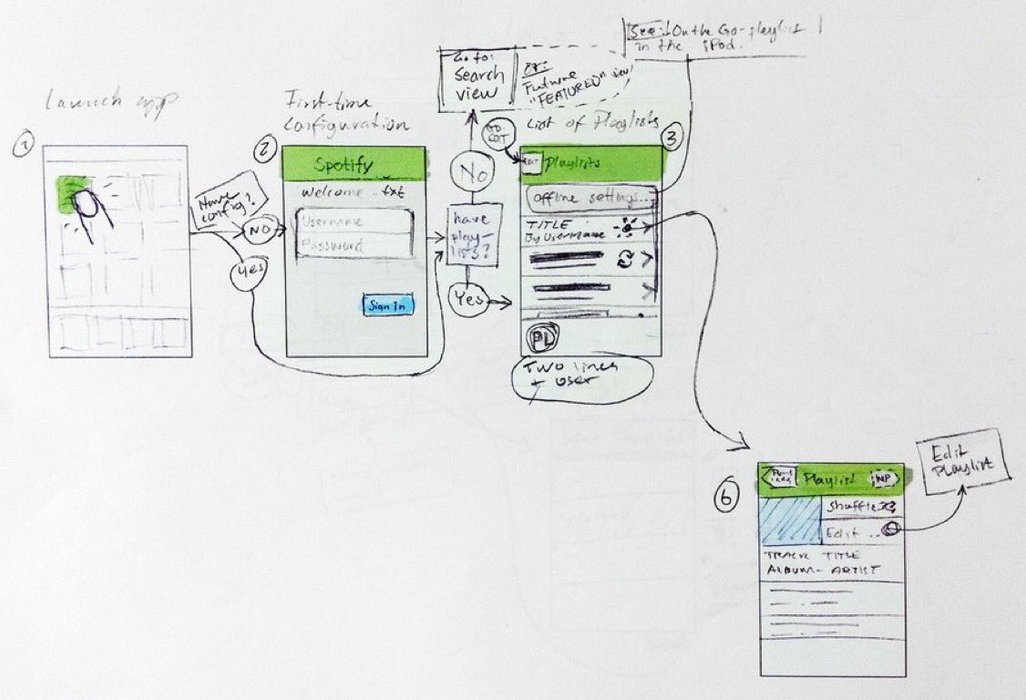 See: On the Go-playlist
in the iPod.
Go to:
Search
view
or:
Future
"FEATURED"
Launch app
First-time
configuration
List of Playlists
1
2
3
TO
EDIT
Spotify
Welcome-txt
Username
Password
Sign In
Have
config?
NO
Yes
No
have
play-
lists?
Yes
EDIT
Playlists
Offline settings...
TITLE
By Username
PL
Two lines
+ user
6
Playlist
NP
Shuffle
Edit ..
TRACK TITLE
ALBUM - ARTIST
Edit
Playlist